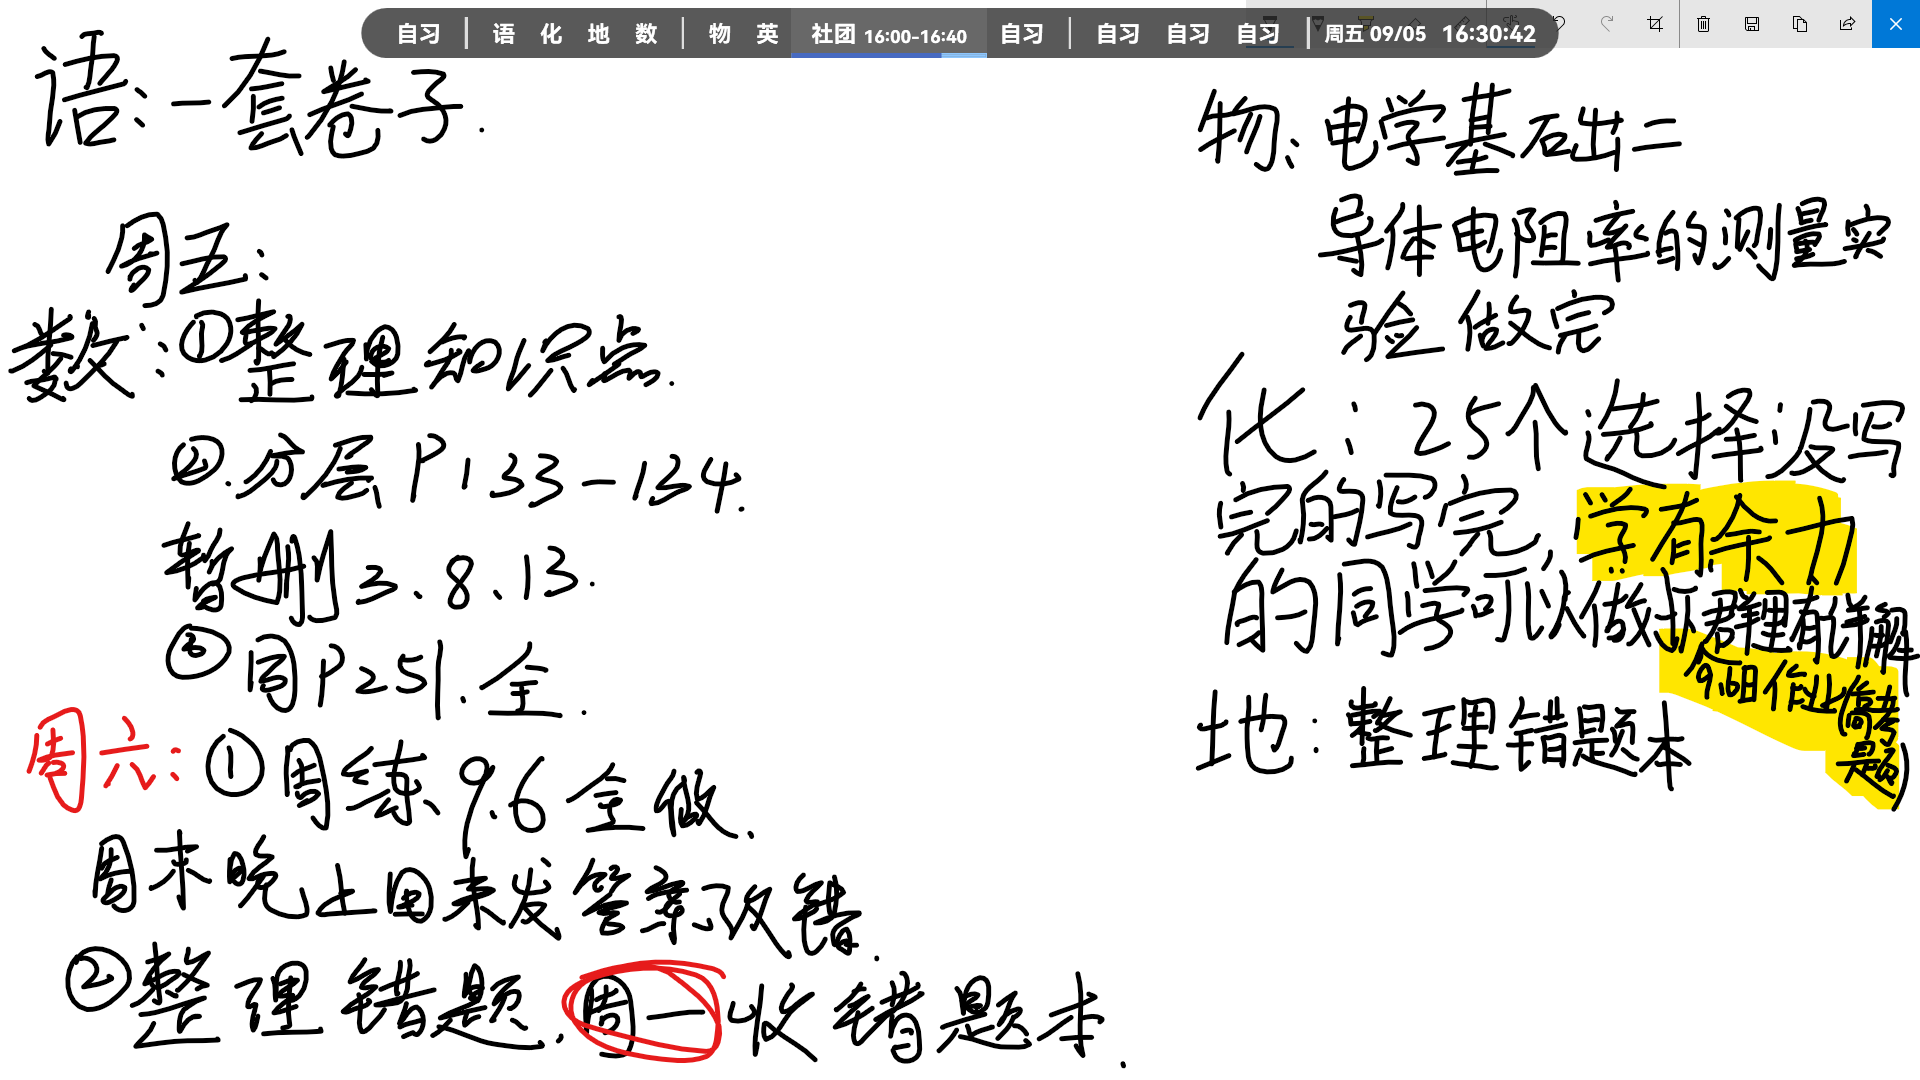 自习 | 语 化 地 数 | 物 英 社团 16:00-16:40 自习 | 自习 自习 自习 | 周五 09/05 16:30:42
语:一套卷子.
周五:
数:①整理知识点.
②.分层P133-134.
暂删3、8、13.
③同P251.全.
周六:①周练9.6全做.
周末晚上回来发答案改错.
②整理错题.周一收错题本.
物:电学基础出二
导体电阻率的测量实
验做完
化:25个选择没写
完的写完,学有余力
的同学可以做
群里有详解
9.6日作业(高考
题)
地:整理错题本